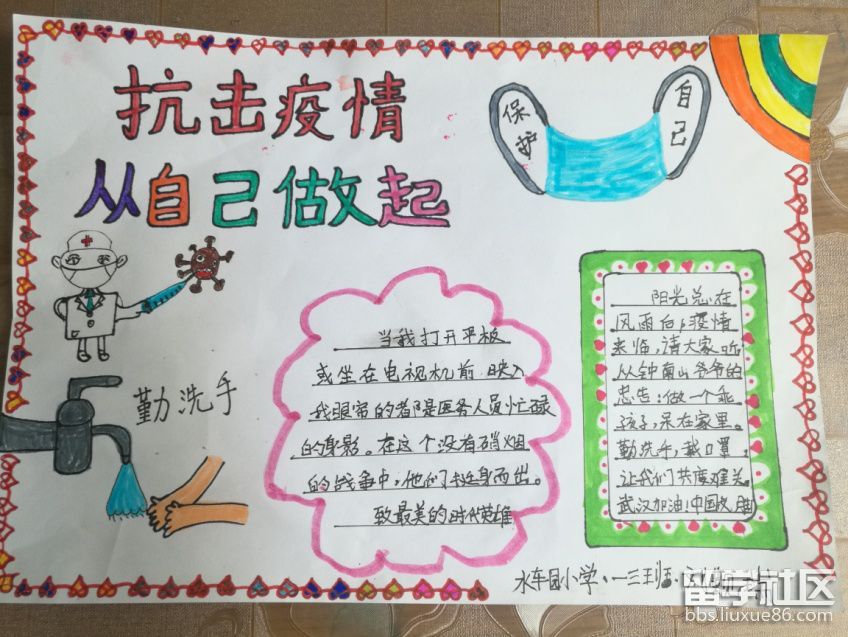 抗击疫情
从自己做起
保护
自己
勤洗手
当我打开平板
或坐在电视机前,映入
我眼帘的都是医务人员忙碌
的身影。在这个没有硝烟
的战争中,他们挺身而出。
致最美的时代英雄
阳光总在
风雨后,疫情
来临,请大家听
从钟南山爷爷的
忠告:做一个乖
孩子,呆在家里。
勤洗手,戴口罩,
让我们共度难关。
武汉加油!中国必胜
水车园小学、一三班
留学社区
bbs.liuxue86.com